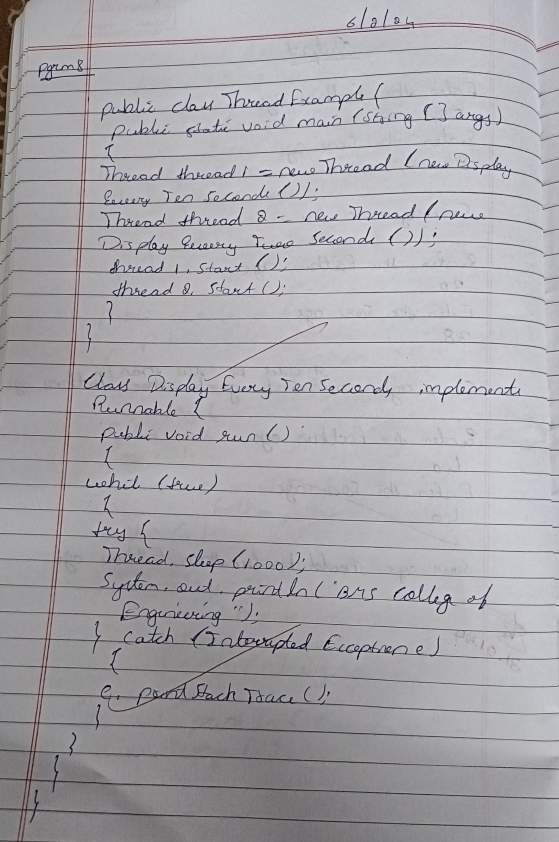 6/2/24
Pgrm8
public class ThreadExample {
public static void main (String [] args)
{
Thread thread1 = new Thread (new Display
Every Ten Seconds ());
Thread thread 2 = new Thread (new
Display Every Two Seconds ());
thread 1. start ();
thread 2. start ();
}
}
Class Display Every Ten Seconds implements
Runnable {
public void run ()
{
whil (true)
{
try {
Thread. sleep (1000);
System. out. println ("BMS Colleg of
Engineering");
} catch (Interrupted Exception e)
{
e. print Stack Trace ();
}
}
}
}